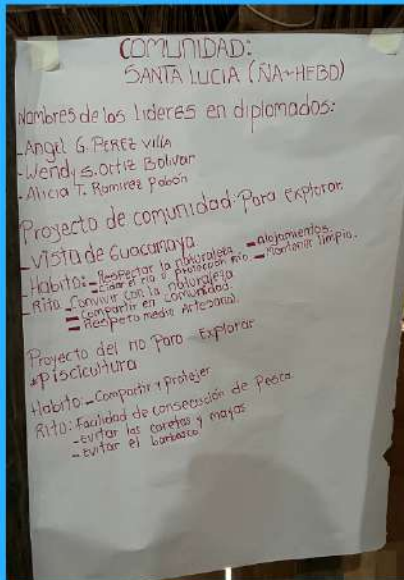 COMUNIDAD:
SANTA LUCIA (ÑA~HEBD)
Nombres de los lideres en diplomados:
-Angel G. PEREZ villa
-Wendy S. Ortiz Bolivar
-Alicia T. Ramirez Pabón
Proyecto de comunidad: Para explorar.
-Vista de Guacamaya
-Habito: - Respetar la naturaleza - alojamientos.
- cuidar el rio o Protección rio. - Mantener limpio.
-Rito - Convivir con la naturaleza
- Compartir en comunidad.
- Respeto medio Artesanal.
Proyecto del rio Para Explorar
*piscicultura
Habito: - Compartir y protejer
Rito: Facilidad de consecusión de Pesca.
- evitar las caretas y mayas
- Evitar el barbasco.